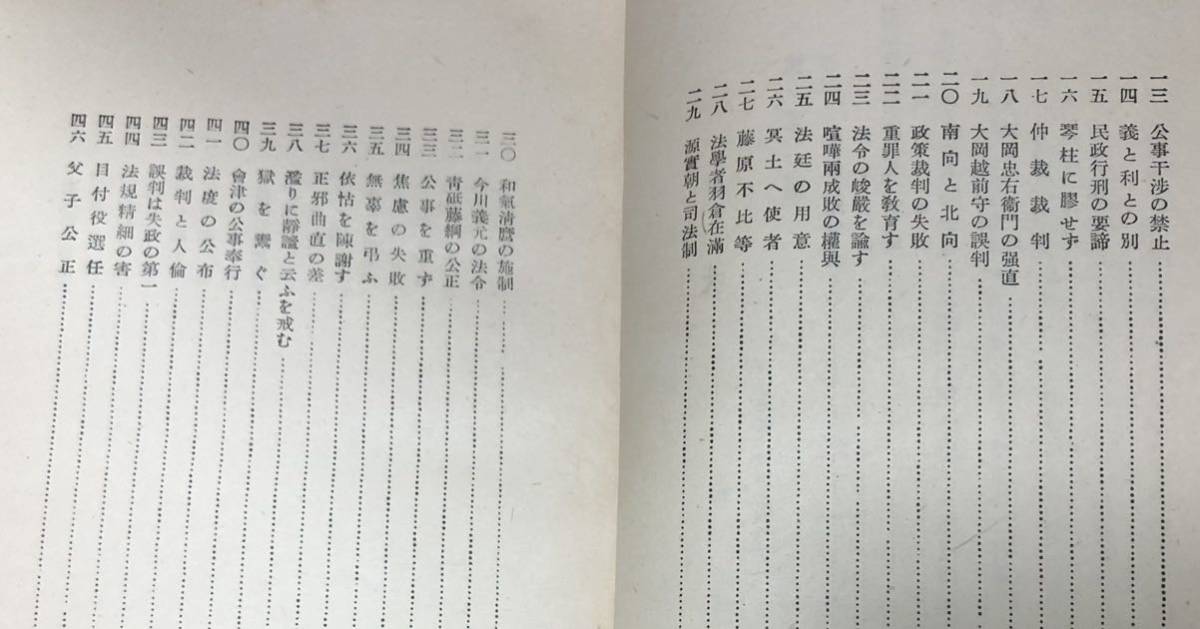 一三 公事干涉の禁止
一四 義と利との別
一五 民政行刑の要諦
一六 琴柱に膠せず
一七 仲裁裁判
一八 大岡忠右衞門の强直
一九 大岡越前守の誤判
二〇 南向と北向
二一 政策裁判の失敗
二二 重罪人を敎育す
二三 法令の峻嚴を諭す
二四 喧嘩兩成敗の權輿
二五 法廷の用意
二六 冥土へ使者
二七 藤原不比等
二八 法學者羽倉在滿
二九 源實朝と司法制
三〇 和氣淸麿の施制
三一 今川義元の法令
三二 靑砥藤綱の公正
三三 公事を重ず
三四 焦慮の失敗
三五 無辜を弔ふ
三六 依怙を陳謝す
三七 正邪曲直の差
三八 濫りに靜謐と云ふを戒む
三九 獄を鬻ぐ
四〇 會津の公事奉行
四一 法度の公布
四二 裁判と人倫
四三 誤判は失政の第一
四四 法規精細の害
四五 目付役選任
四六 父子公正